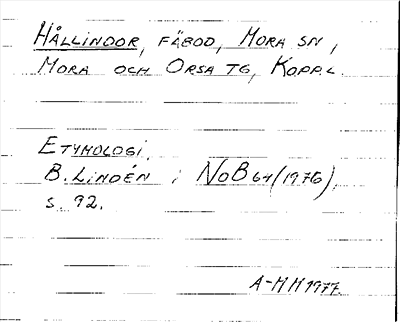 HÅLLINDOR, FÄBOD, MORA SN,
MORA OCH ORSA TG, KOPP.L.
ETYMOLOGI.
B. LINDÉN i NoB 64 (1976),
s. 92.
A-M H 1977.